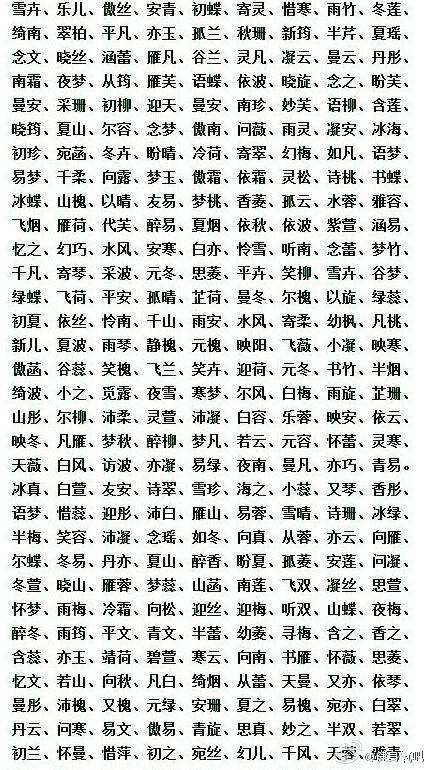 雪卉、乐儿、傲丝、安青、初蝶、寄灵、惜寒、雨竹、冬莲、
绮南、翠柏、平凡、亦玉、孤兰、秋珊、新筠、半芹、夏瑶、
念文、晓丝、涵蕾、雁凡、谷兰、灵凡、凝云、曼云、丹彤、
南霜、夜梦、从筠、雁芙、语蝶、依波、晓旋、念之、盼芙、
曼安、采珊、初柳、迎天、曼安、南珍、妙芙、语柳、含莲、
晓筠、夏山、尔容、念梦、傲南、问薇、雨灵、凝安、冰海、
初珍、宛菡、冬卉、盼晴、冷荷、寄翠、幻梅、如凡、语梦、
易梦、千柔、向露、梦玉、傲霜、依霜、灵松、诗桃、书蝶、
冰蝶、山槐、以晴、友易、梦桃、香菱、孤云、水蓉、雅容、
飞烟、雁荷、代芙、醉易、夏烟、依秋、依波、紫萱、涵易、
忆之、幻巧、水风、安寒、白亦、怜雪、听南、念蕾、梦竹、
千凡、寄琴、采波、元冬、思菱、平卉、笑柳、雪卉、谷梦、
绿蝶、飞荷、平安、孤晴、芷荷、曼冬、尔槐、以旋、绿蕊、
初夏、依丝、怜南、千山、雨安、水风、寄柔、幼枫、凡桃、
新儿、夏波、雨琴、静槐、元槐、映阳、飞薇、小凝、映寒、
傲菡、谷蕊、笑槐、飞兰、笑卉、迎荷、元冬、书竹、半烟、
绮波、小之、觅露、夜雪、寒梦、尔风、白梅、雨旋、芷珊、
山彤、尔柳、沛柔、灵萱、沛凝、白容、乐蓉、映安、依云、
映冬、凡雁、梦秋、醉柳、梦凡、若云、元容、怀蕾、灵寒、
天薇、白风、访波、亦凝、易绿、夜南、曼凡、亦巧、青易。
冰真、白萱、友安、诗翠、雪珍、海之、小蕊、又琴、香彤、
语梦、惜蕊、迎彤、沛白、雁山、易蓉、雪晴、诗珊、冰绿、
半梅、笑容、沛凝、念瑶、如冬、向真、从蓉、亦云、向雁、
尔蝶、冬易、丹亦、夏山、醉香、盼夏、孤菱、安莲、问凝、
冬萱、晓山、雁蓉、梦蕊、山菡、南莲、飞双、凝丝、思萱、
怀梦、雨梅、冷霜、向松、迎丝、迎梅、听双、山蝶、夜梅、
醉冬、雨筠、平文、青文、半蕾、幼菱、寻梅、含之、香之、
含蕊、亦玉、靖荷、碧萱、寒云、向南、书雁、怀薇、思菱、
忆文、若山、向秋、凡白、绮烟、从蕾、天曼、又亦、依琴、
曼彤、沛槐、又槐、元绿、安珊、夏之、易槐、宛亦、白翠、
丹云、问寒、易文、傲易、青旋、思真、妙之、半双、若翠、
初兰、怀曼、惜萍、初之、宛丝、幻儿、千风、天蓉、雅青、